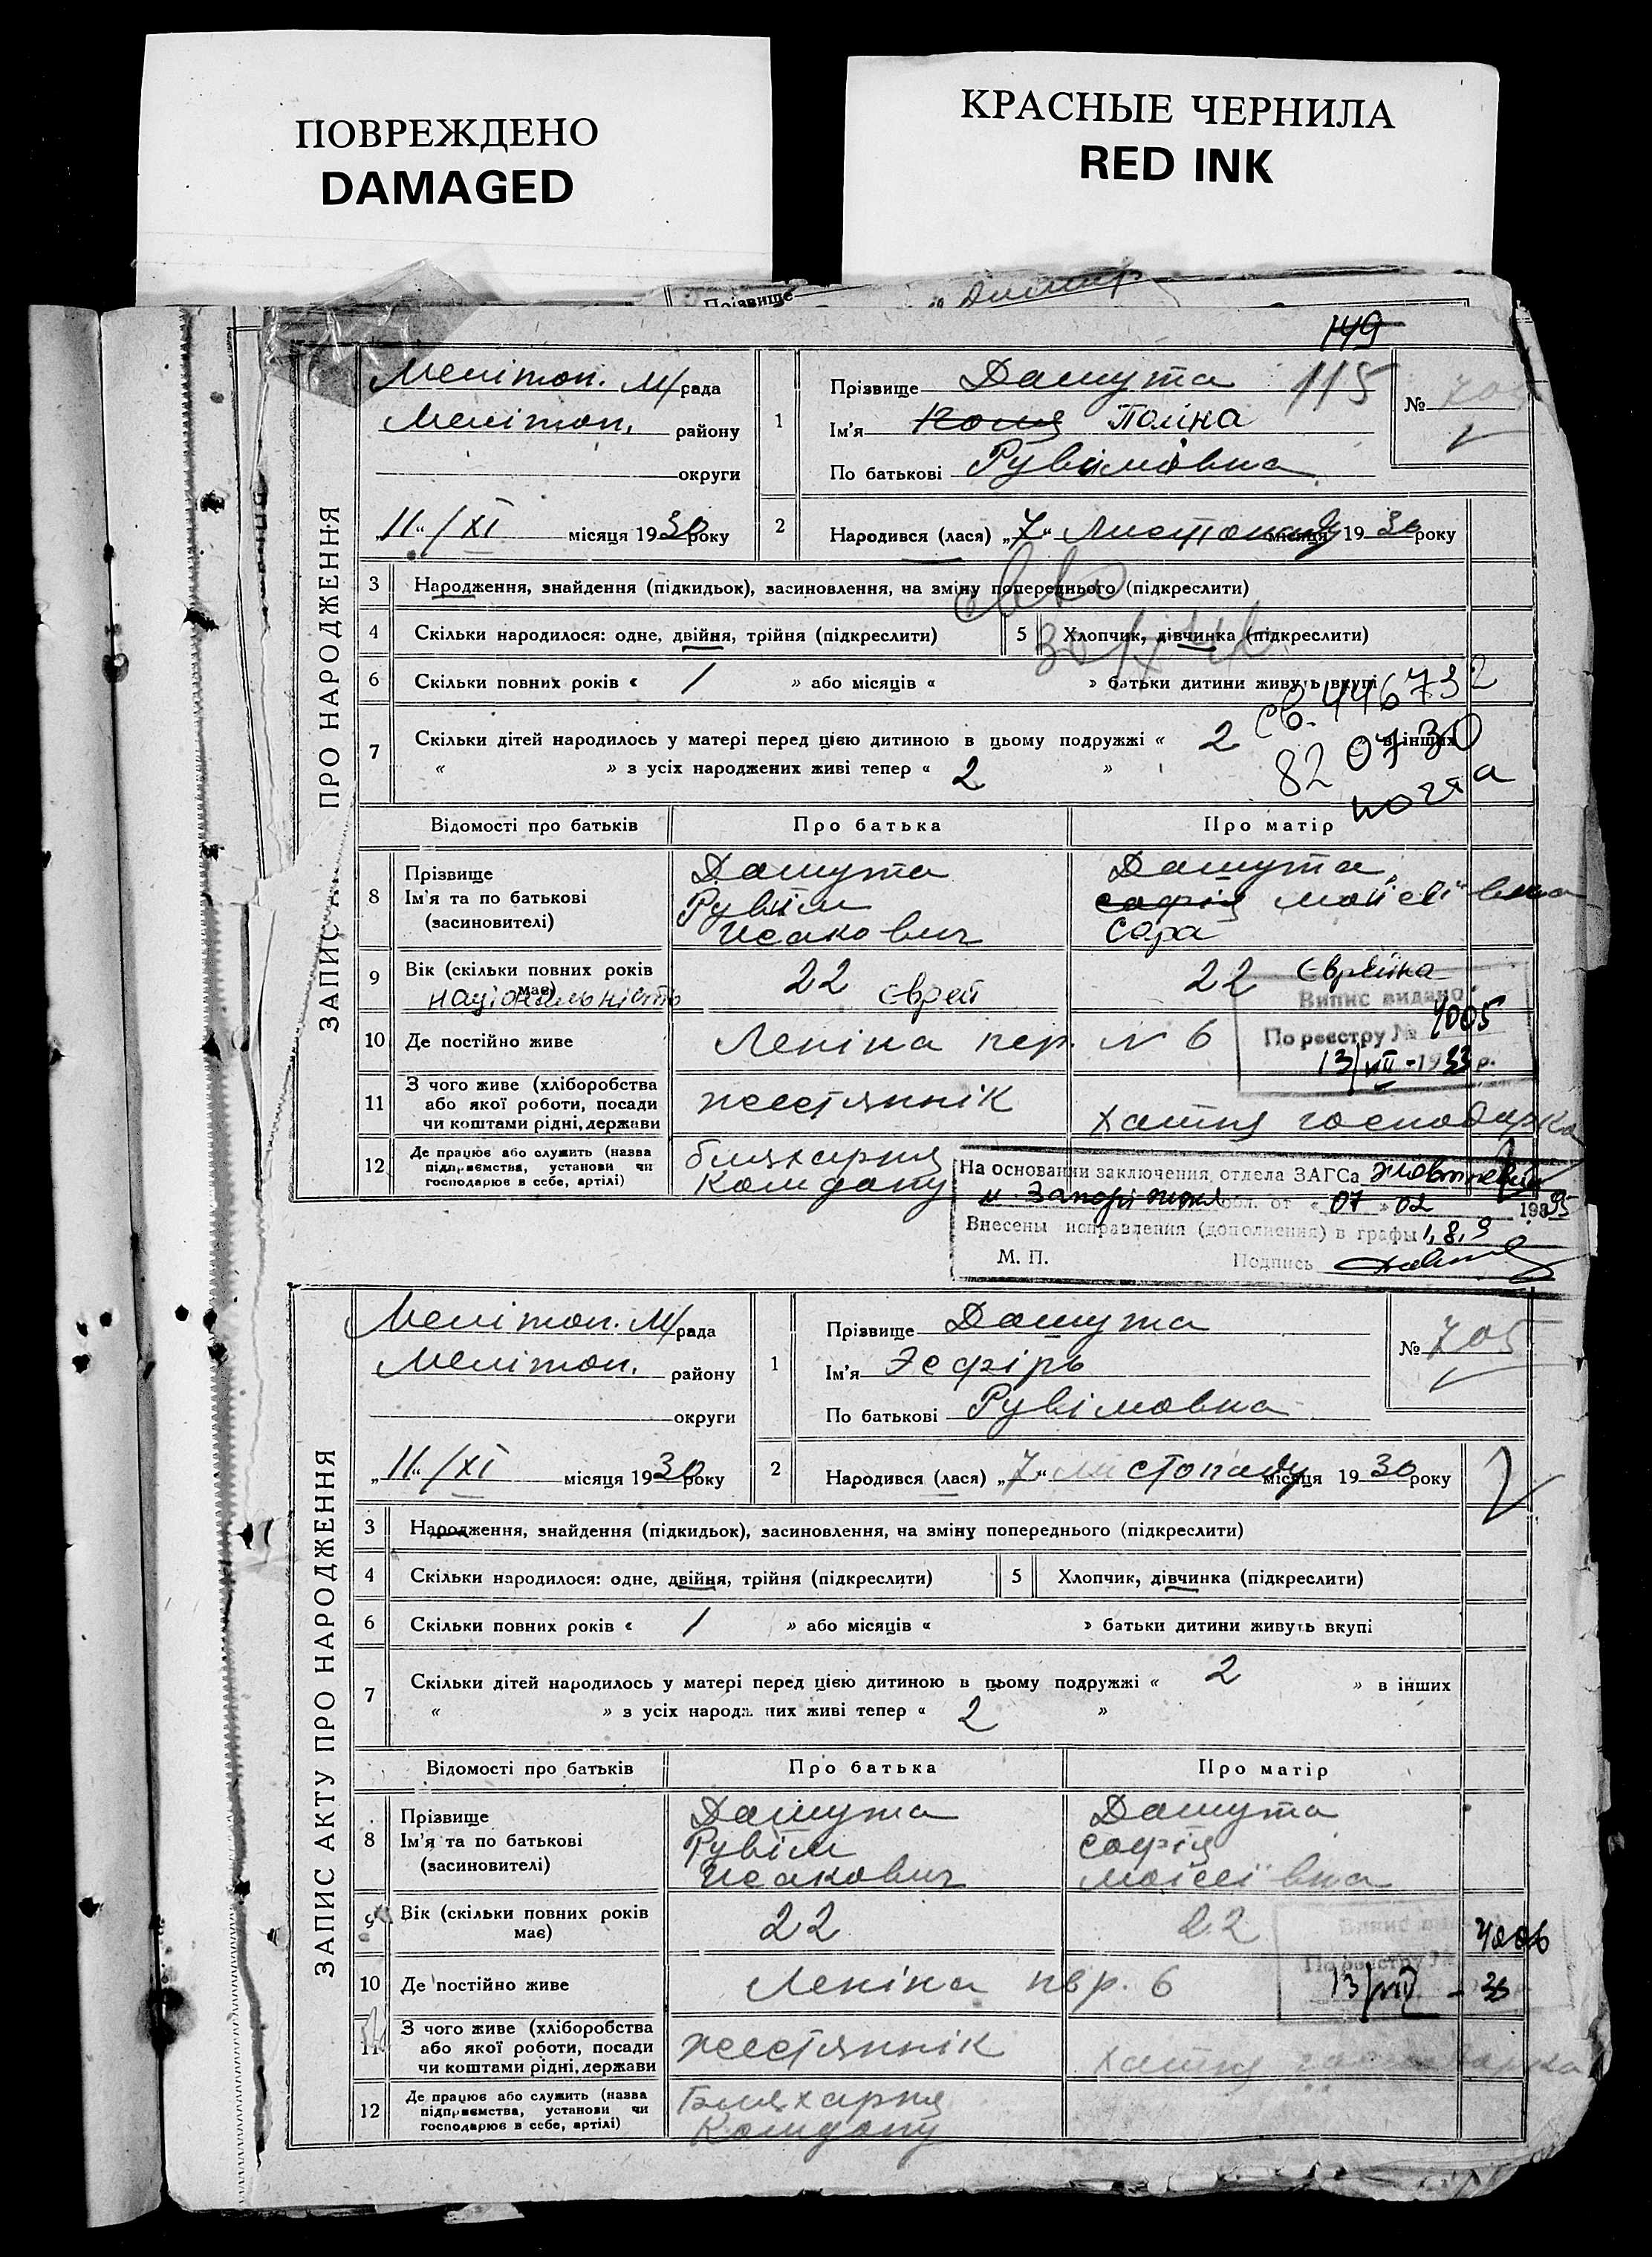 ПОВРЕЖДЕНО
DAMAGED
КРАСНЫЕ ЧЕРНИЛА
RED INK
Прізвище
149
115
ЗАПИС ПРО НАРОДЖЕННЯ
Мелітоп. М/рада
Мелітоп. району
округи
„11“ /XI місяця 1930 року
1 Прізвище Дашута
Ім'я Поліна
По батькові Рувімовна
№ 704
2 Народився (лася) „7“ Листопаду місяця 1930 року
3 Народження, знайдення (підкидьок), засиновлення, на зміну попереднього (підкреслити)
4 Скільки народилося: одне, двійня, трійня (підкреслити)
5 Хлопчик, дівчинка (підкреслити)
6 Скільки повних років « 1 » або місяців « » батьки дитини живуть вкупі
св. 446732
7 Скільки дітей народилось у матері перед цією дитиною в цьому подружжі « 2 » в інших
« » з усіх народжених живі тепер « 2 »
82 07 30
Відомості про батьків
Про батька
Про матір
8 Прізвище
Ім'я та по батькові
(засиновителі)
Дашута
Рувім
Исакович
Дашута
софія Мойсеївна
Сара
9 Вік (скільки повних років
має)
національність
22 єврей
22 Єврейка
Випис видано
По реєстру № 4005
13/VII - 1933 р.
10 Де постійно живе
Леніна пер. N 6
11 З чого живе (хліборобства
або якої роботи, посади
чи коштами рідні, держави
жестяннік
хатня господарка
12 Де працює або служить (назва
підприємства, установи чи
господарює в себе, артілі)
бляхарня
Комдопу
На основании заключения отдела ЗАГСа Жовтневий
м. Запоріжжя обл. от « 07 » 02 1995
Внесены исправления (дополнения) в графы 1, 8, 9
М. П.
Подпись
ЗАПИС АКТУ ПРО НАРОДЖЕННЯ
Мелітоп. М/рада
Мелітоп. району
округи
„11“ /XI місяця 1930 року
1 Прізвище Дашута
Ім'я Эсфірь
По батькові Рувімовна
№ 705
2 Народився (лася) „7“ листопаду місяця 1930 року
3 Народження, знайдення (підкидьок), засиновлення, на зміну попереднього (підкреслити)
4 Скільки народилося: одне, двійня, трійня (підкреслити)
5 Хлопчик, дівчинка (підкреслити)
6 Скільки повних років « 1 » або місяців « » батьки дитини живуть вкупі
7 Скільки дітей народилось у матері перед цією дитиною в цьому подружжі « 2 » в інших
« » з усіх народжених живі тепер « 2 »
Відомості про батьків
Про батька
Про матір
8 Прізвище
Ім'я та по батькові
(засиновителі)
Дашута
Рувім
Исакович
Дашута
софія
Моісеївна
9 Вік (скільки повних років
має)
22
22
Випис
По реєстру № 4006
13/VII - 33
10 Де постійно живе
Леніна пер. 6
11 З чого живе (хліборобства
або якої роботи, посади
чи коштами рідні, держави
жестяннік
хатня господарка
12 Де працює або служить (назва
підприємства, установи чи
господарює в себе, артілі)
Бляхарня
Комдопу